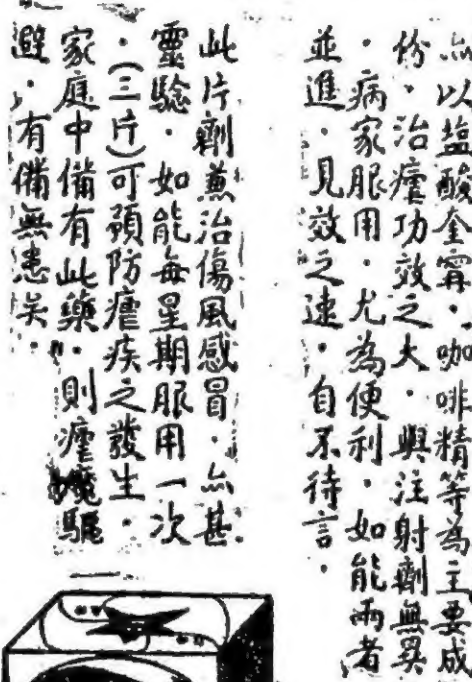 亦以塩酸奎寗・咖啡精等為主要成
份・治瘧功效之大・與注射劑無異
・病家服用・尤為便利・如能兩者
並進・見效之速・自不待言・
此片劑兼治傷風感冒・亦甚
靈驗・如能每星期服用一次
・(三片)可預防瘧疾之發生・
家庭中備有此藥・則瘧魔驅
避・有備無患矣・